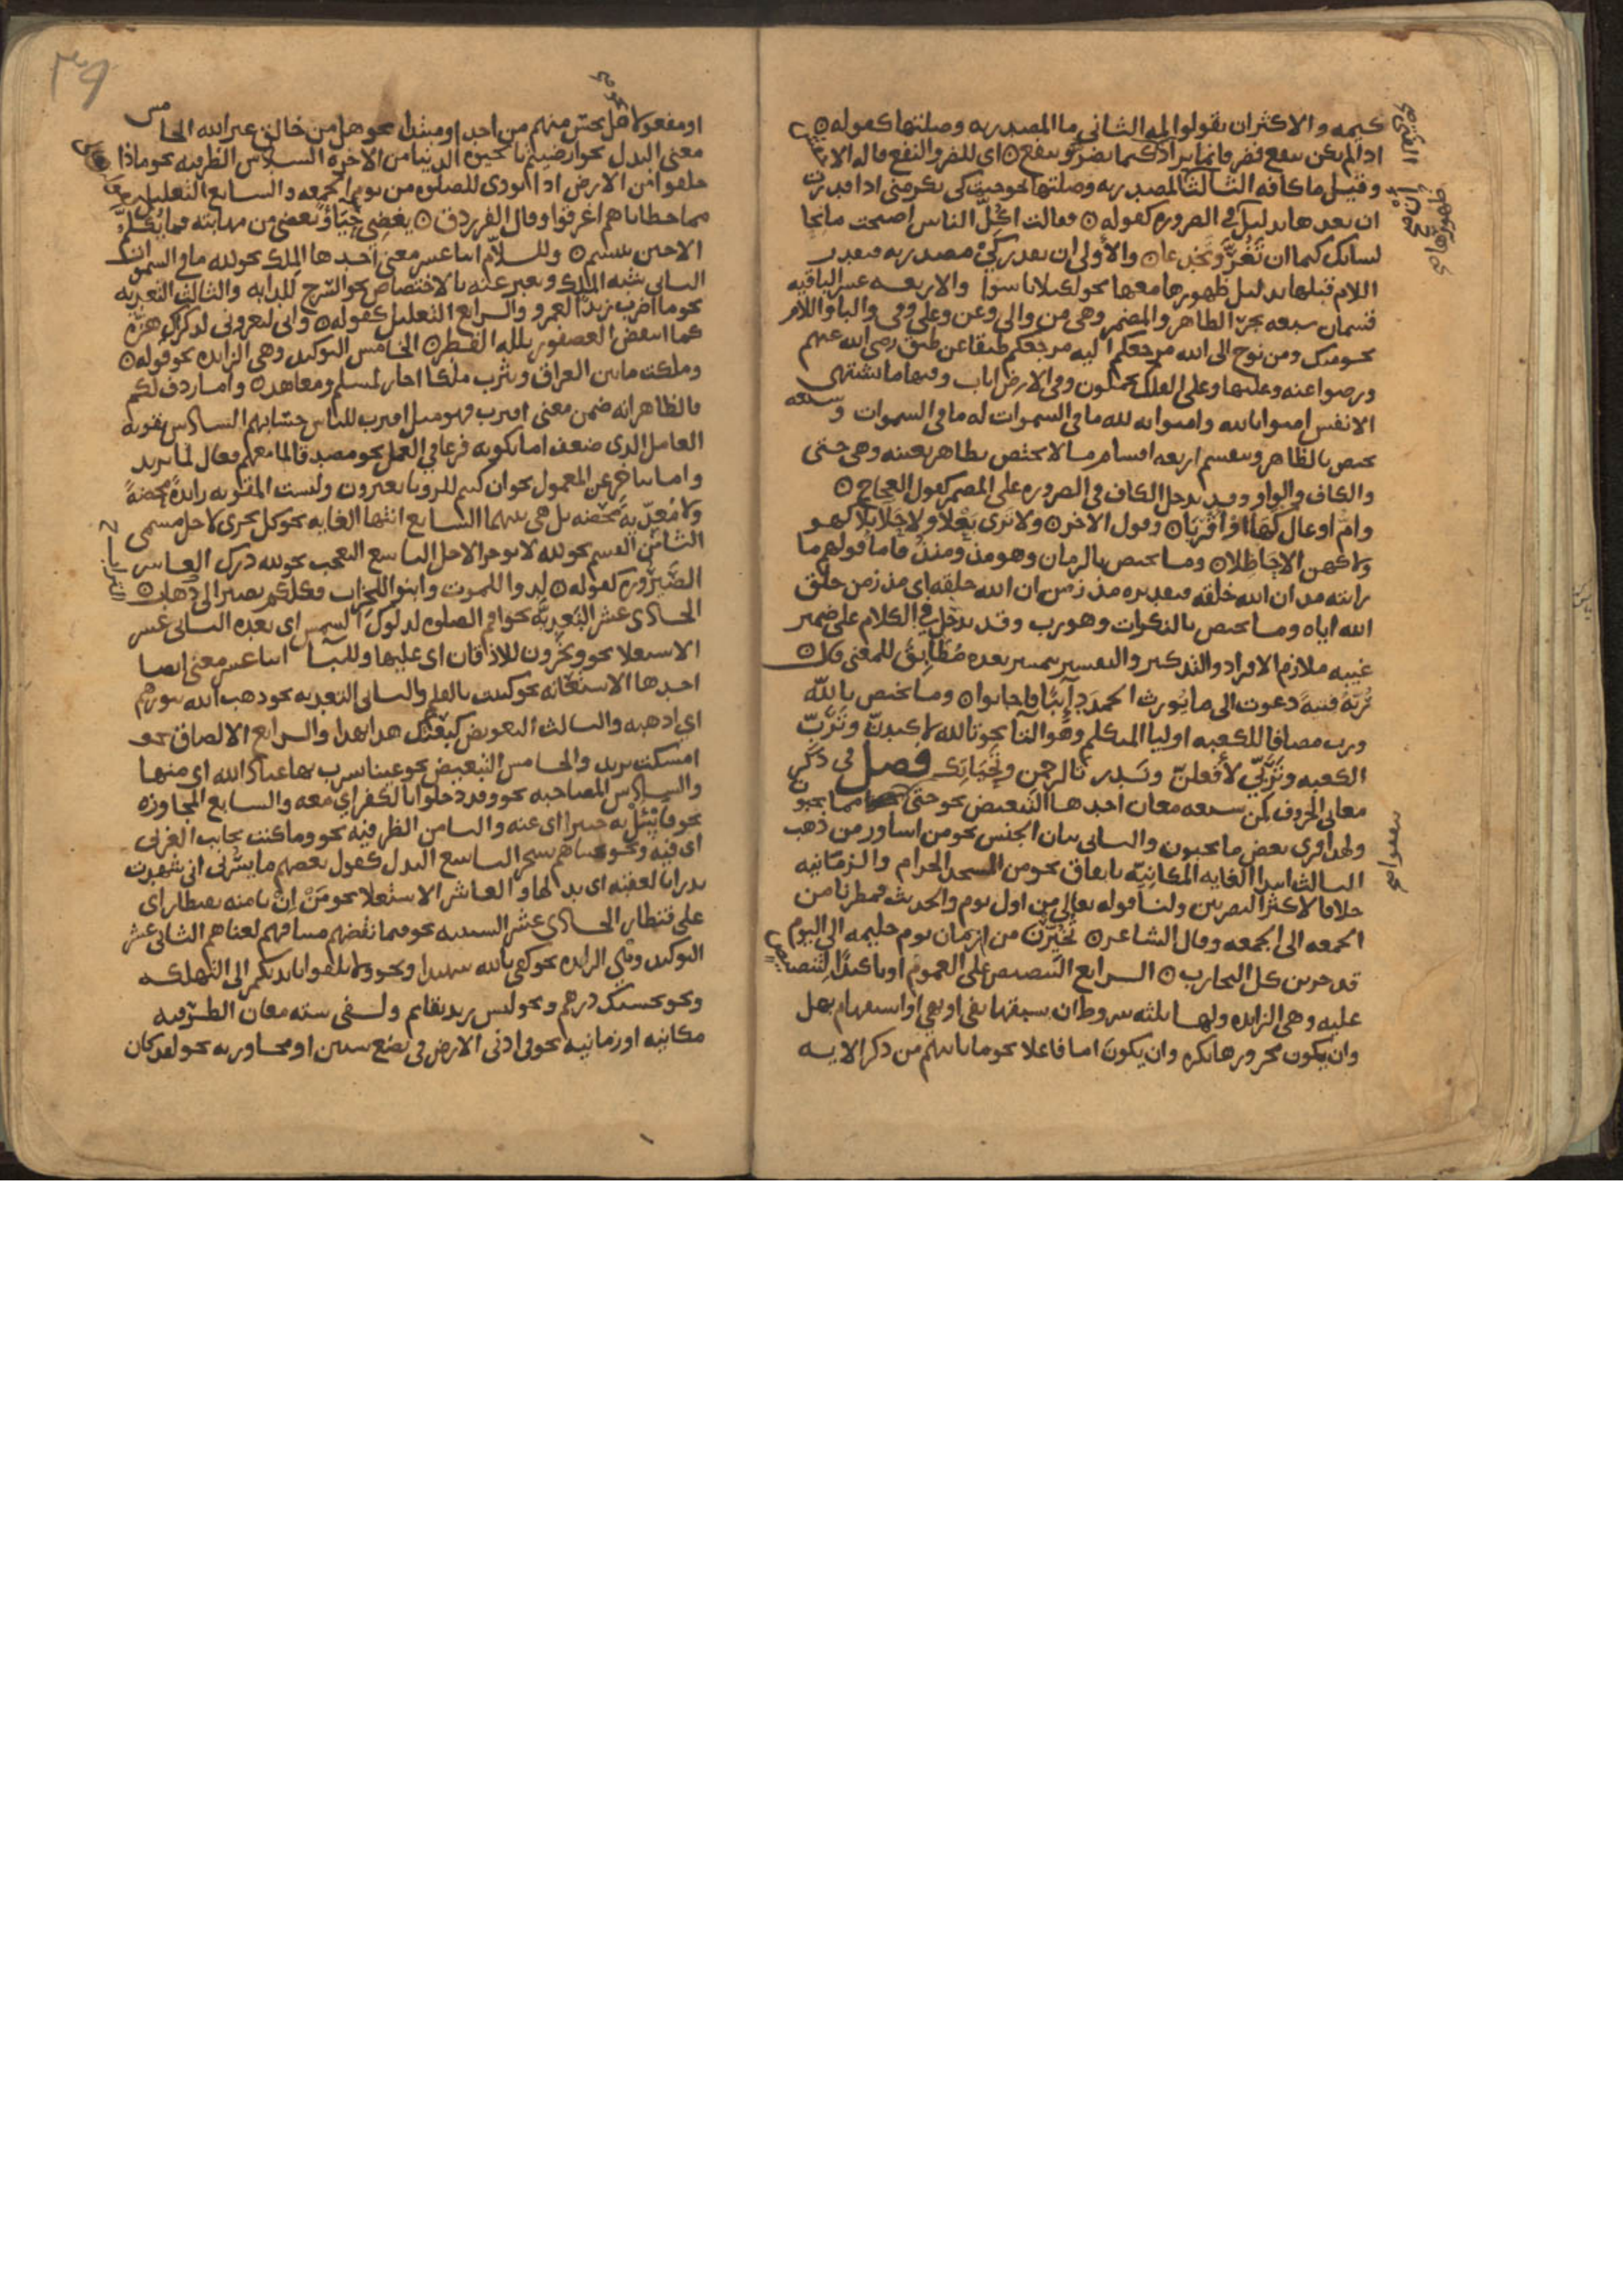 كيمه والاكثر ان يقولوا لمه الثاني ما المصدريه وصلتها كقوله
اذا انت لم تنفع فضر فانما يراد الفتى كيما يضر وينفع اى للضر والنفع قاله الاخفش
وقيل ما كافه الثالث ان المصدريه وصلتها نحو جيت كى تكرمنى اذا قدرت
ان بعدها بدليل ظهورها فى الضروره كقوله فقالت اكل الناس اصبحت مانحا
لسانك كيما ان تغر وتخدعا والاولى ان تقدر كى مصدريه فتقدر
اللام قبلها بدليل ظهورها معها نحو لكيلا تاسوا والاربعه عشر الباقيه
قسمان سبعه تجر الظاهر والمضمر وهى من والى وعن وعلى وفى والبا واللام
نحو ومنك ومن نوح الى الله مرجعكم اليه مرجعكم طبقا عن طبق رضى الله عنهم
ورضوا عنه وعليها وعلى الفلك تحملون وفى الارض ايات وفيها ما تشتهى
الانفس امنوا بالله وامنوا به لله ما فى السموات له ما فى السموات وسبعه
تختص بالظاهر وتنقسم اربعه اقسام ما لا يختص بظاهر بعينه وهى حتى
والكاف والواو وقد تدخل الكاف فى الضروره على المضمر كقول العجاج
وام اوعال كها او اقربا وقول الاخر ولا ترى بعلا ولا حلايلا كهو
ولا كهن الا حاظلا وما يختص بالزمان وهو مذ ومنذ فاما قولهم ما
رايته مذ ان الله خلقه فتقديره مذ زمن ان الله خلقه اى مذ زمن خلق
الله اياه وما يختص بالنكرات وهو رب وقد تدخل فى الكلام على ضمير
غيبه ملازم الافراد والتذكير والتفسير بتمييز بعده مطابق للمعنى قال
ربه فتية دعوت الى ما يورث الحمد دايبا فاجابوا وما يختص بالله
ورب مضافا للكعبه او ليا المتكلم وهو التا نحو تالله لاكيدن وترب
الكعبه وتربي لافعلن وندر تالرحمن وتحياتك فصل فى ذكر
معانى الحروف لمن سبعه معان احدها التبعيض نحو حتى تنفقوا مما تحبون
ولهذا قرى بعض ما تحبون والثانى بيان الجنس نحو من اساور من ذهب
الثالث ابتدا الغايه المكانيه باتفاق نحو من المسجد الحرام والزمانيه
خلافا لاكثر البصريين ولنا قوله تعالى من اول يوم والحديث فمطرنا من
الجمعه الى الجمعه وقال الشاعر تخيرن من ازمان يوم حليمه الى اليوم
قد جربن كل التجارب الرابع التنصيص على العموم او تاكيد التنصيص
عليه وهى الزايده ولها ثلثه شروط ان يسبقها نفى او نهى او استفهام بهل
وان يكون مجرورها نكره وان يكون اما فاعلا نحو ما ياتيهم من ذكر الايه
او مفعولا نحو هل تحس منهم من احد او مبتدا نحو هل من خالق غير الله الخامس
معنى البدل نحو ارضيتم بالحيوه الدنيا من الاخره السادس الظرفيه نحو ماذا
خلقوا من الارض اذا نودى للصلوه من يوم الجمعه والسابع التعليل نحو
مما خطاياهم اغرقوا وقال الفرزدق يغضى حياؤ ويغضى من مهابته فما يكلم
الا حين يبتسم وللام اثنا عشر معنى احدها الملك نحو لله ما فى السموات
الثانى شبه الملك ويعبر عنه بالاختصاص نحو السرج للدابه والثالث التعديه
نحو ما اضرب زيدا لعمرو والرابع التعليل كقوله وانى لتعرونى لذكراك هزة
كما انتفض العصفور بلله القطر الخامس التوكيد وهى الزايده نحو قوله
وملكت ما بين العراق ويثرب ملكا اجار لمسلم ومعاهد واما ردف لكم
فالظاهر انه ضمن معنى اقترب فهو مثل اقترب للناس حسابهم السادس تقويه
العامل الذى ضعف اما بكونه فرعا فى العمل نحو مصدقا لما معهم فعال لما يريد
واما بتاخره عن المعمول نحو ان كنتم للرويا تعبرون وليست المقويه زايدة محضة
ولا معديه محضه بل هى بينهما السابع انتها الغايه نحو كل يجرى لاجل مسمى
الثامن القسم نحو لله لا يوخر الاجل التاسع التعجب نحو لله درك العاشر
الصيروره كقوله لدوا للموت وابنوا للخراب فكلكم يصير الى ذهاب
الحادى عشر البعدية نحو اقم الصلوه لدلوك الشمس اى بعده الثانى عشر
الاستعلا نحو ويخرون للاذقان اى عليها وللبا اثنا عشر معنى ايضا
احدها الاستعانه نحو كتبت بالقلم والثانى التعديه نحو ذهب الله بنورهم
اى اذهبه والثالث التعويض كبعتك هذا بهذا والرابع الالصاق نحو
امسكت بزيد والخامس التبعيض نحو عينا يشرب بها عباد الله اى منها
والسادس المصاحبه نحو وقد دخلوا بالكفر اى معه والسابع المجاوزه
نحو فاسئل به خبيرا اى عنه والثامن الظرفيه نحو وما كنت بجانب الغربى
اى فيه ونحو نجيناهم بسحر التاسع البدل كقول بعضهم ما يسرنى انى شهدت
بدرا بالعقبه اى بدلها والعاشر الاستعلا نحو من ان تامنه بقنطار اى
على قنطار الحادى عشر السببيه نحو فبما نقضهم ميثاقهم لعناهم الثانى عشر
التوكيد وهى الزايده نحو كفى بالله شهيدا ونحو ولا تلقوا بايديكم الى التهلكه
ونحو بحسبك درهم ونحو ليس زيد بقايم ولفى سته معان الظرفيه
مكانيه او زمانيه نحو فى ادنى الارض فى بضع سنين او مجازيه نحو لقد كان